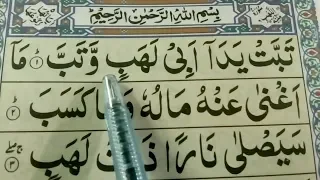 بِسْمِ اللّٰهِ الرَّحْمٰنِ الرَّحِيْمِ
تَبَّتْ يَدَآ اَبِيْ لَهَبٍ وَّتَبَّ ۱ مَآ
اَغْنٰى عَنْهُ مَالُهٗ وَمَا كَسَبَ ۲
سَيَصْلٰى نَارًا ذَاتَ لَهَبٍ ۳